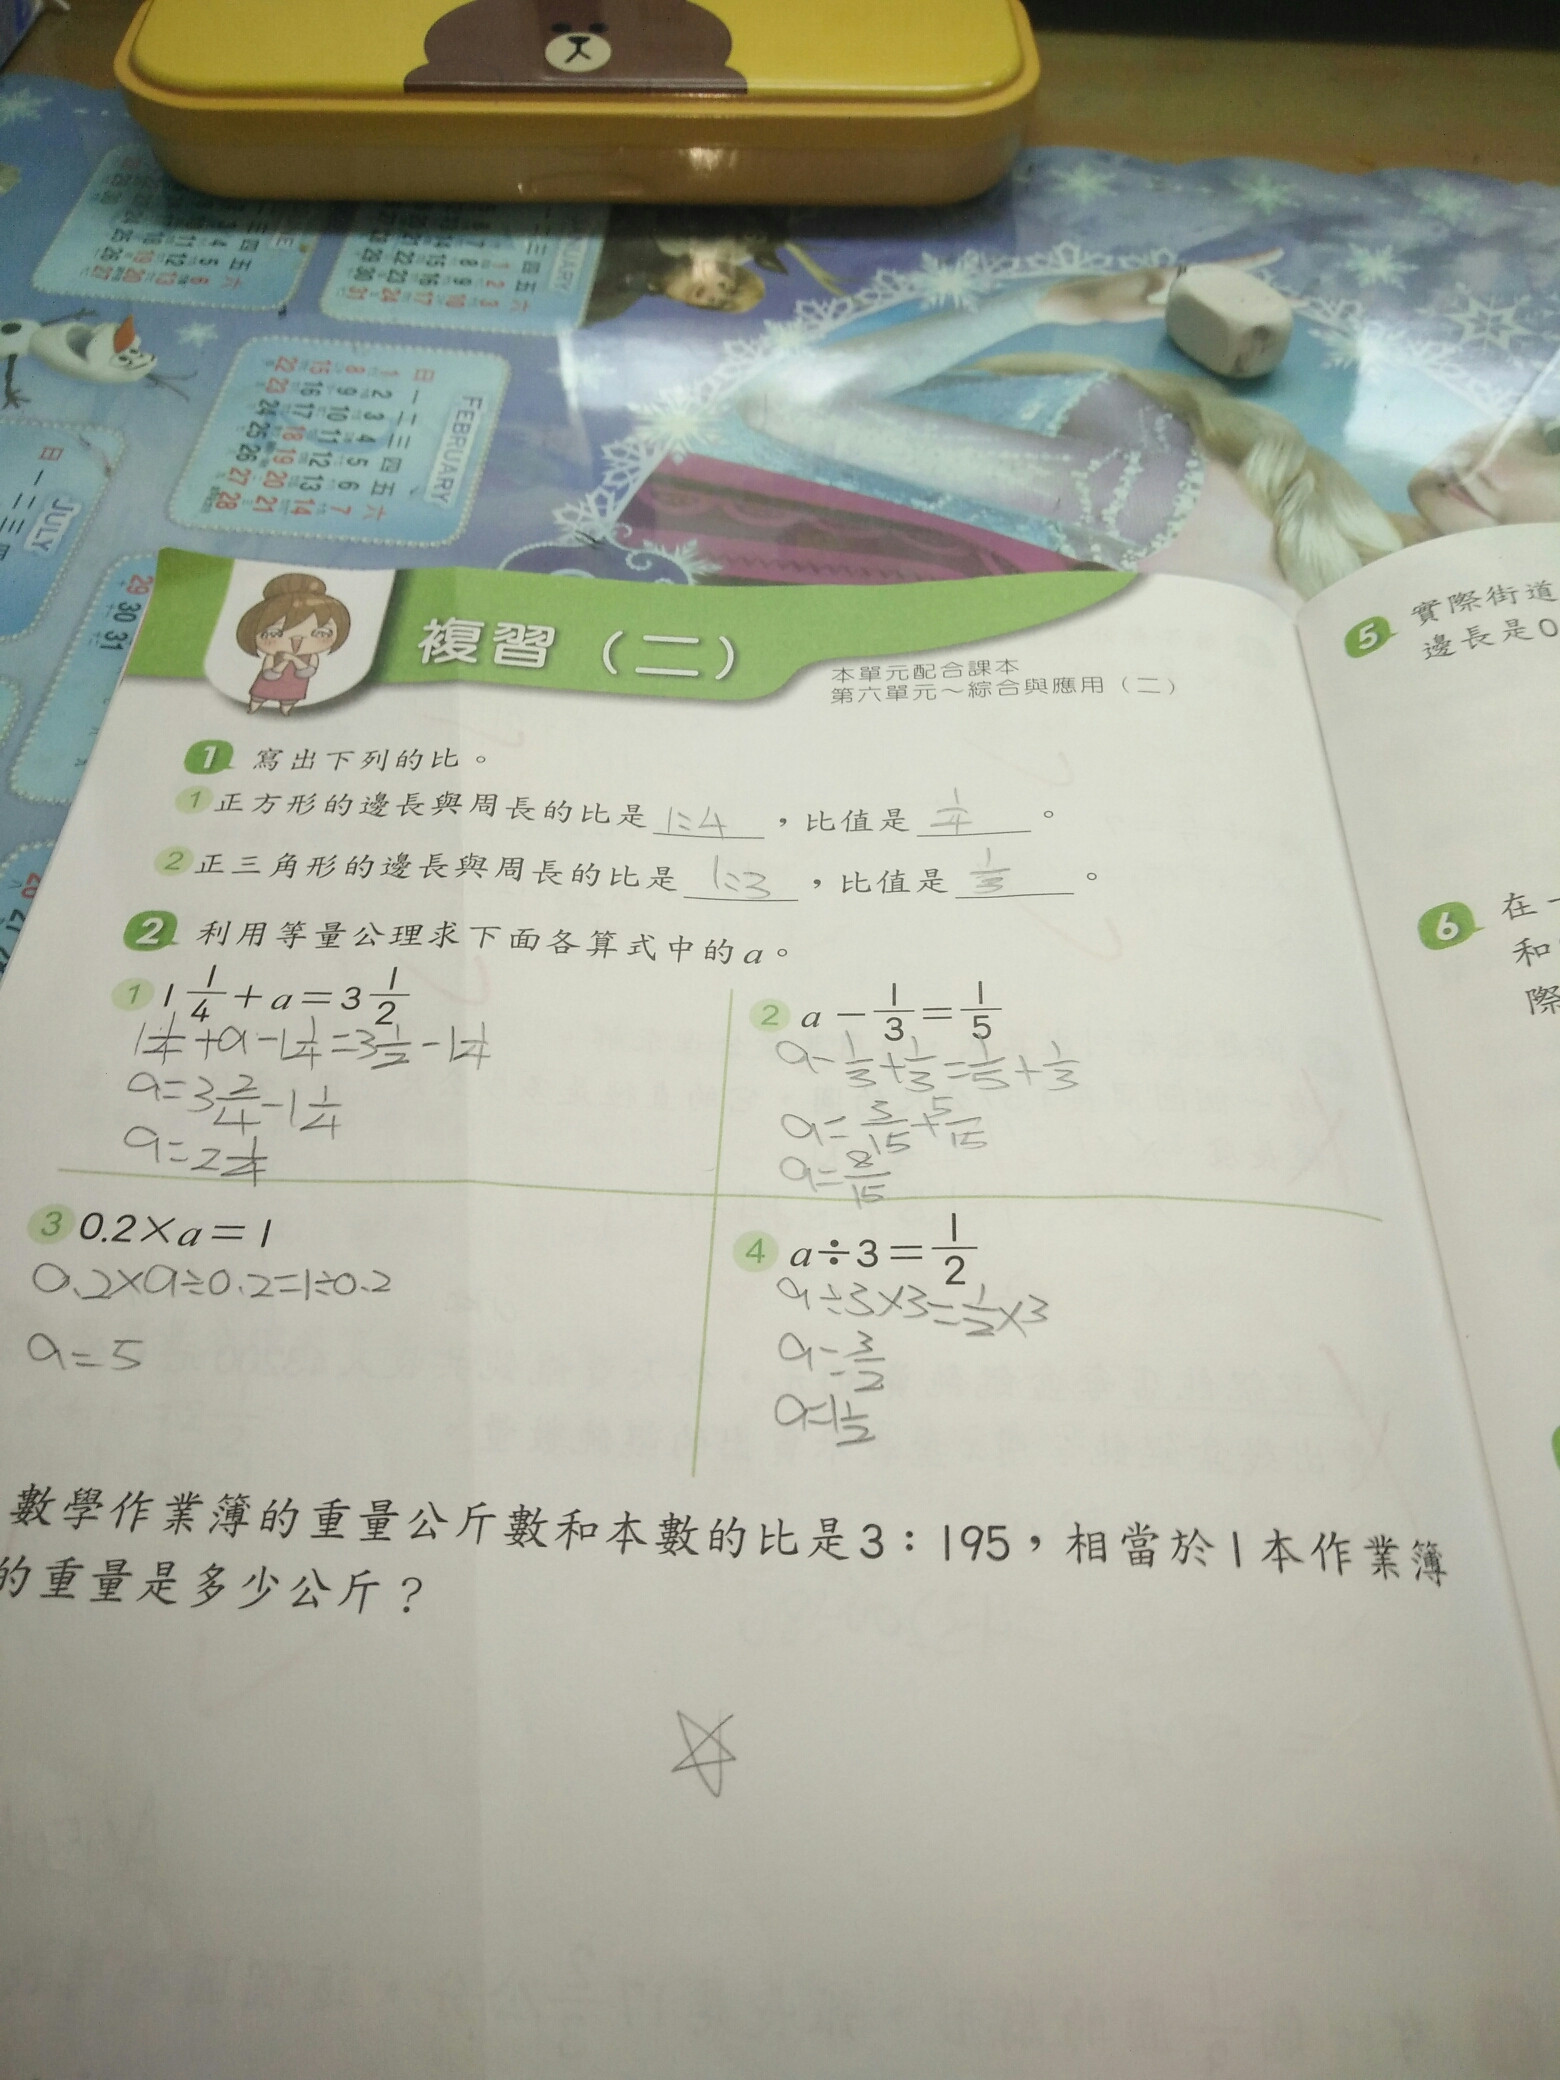 FEBRUARY
日 一 二 三 四 五 六
1 2 3 4 5 6 7
8 9 10 11 12 13 14
15 16 17 18 19 20 21
22 23 24 25 26 27 28
JULY
日 一 二 三 四
29 30 31
複習（二）
本單元配合課本
第六單元～綜合與應用（二）
1 寫出下列的比。
1 正方形的邊長與周長的比是 1:4 ，比值是 1/4 。
2 正三角形的邊長與周長的比是 1:3 ，比值是 1/3 。
2 利用等量公理求下面各算式中的a。
1 1 1/4 + a = 3 1/2
1 1/4 + a - 1 1/4 = 3 1/2 - 1 1/4
a = 3 2/4 - 1 1/4
a = 2 1/4
2 a - 1/3 = 1/5
a - 1/3 + 1/3 = 1/5 + 1/3
a = 3/15 + 5/15
a = 8/15
3 0.2×a=1
0.2×a÷0.2=1÷0.2
a=5
4 a÷3=1/2
a÷3×3=1/2×3
a=3/2
a=1 1/2
數學作業簿的重量公斤數和本數的比是3：195，相當於1本作業簿
的重量是多少公斤？
5 實際街道
邊長是0
6 在一
和
際